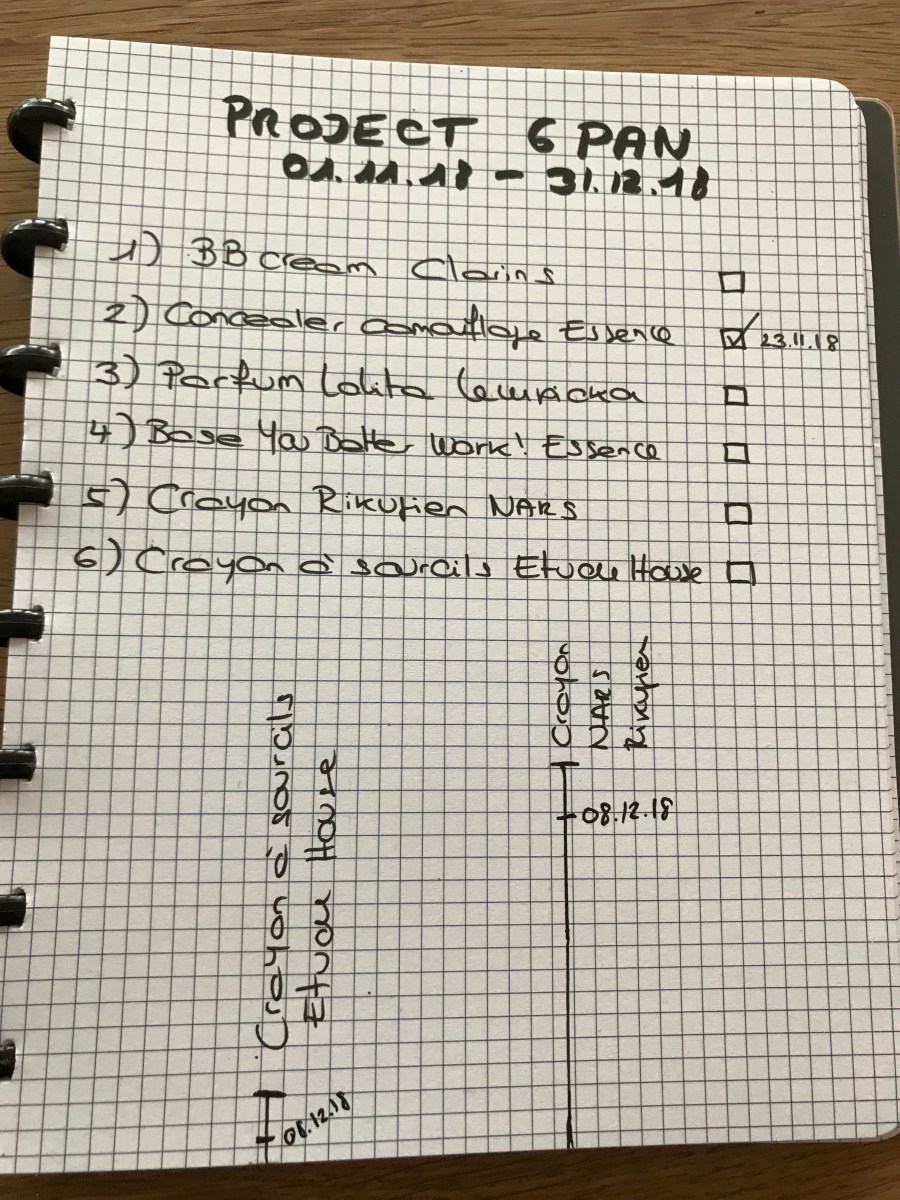 PROJECT 6 PAN
01.11.18 - 31.12.18
1) BB cream Clarins
2) Concealer camouflage Essence 23.11.18
3) Parfum Lolita Lempicka
4) Base You Better Work! Essence
5) Crayon Rikugien NARS
6) Crayon à sourcils Etude House
Crayon
NARS
Rikugien
08.12.18
Crayon à sourcils
Etude House
08.12.18